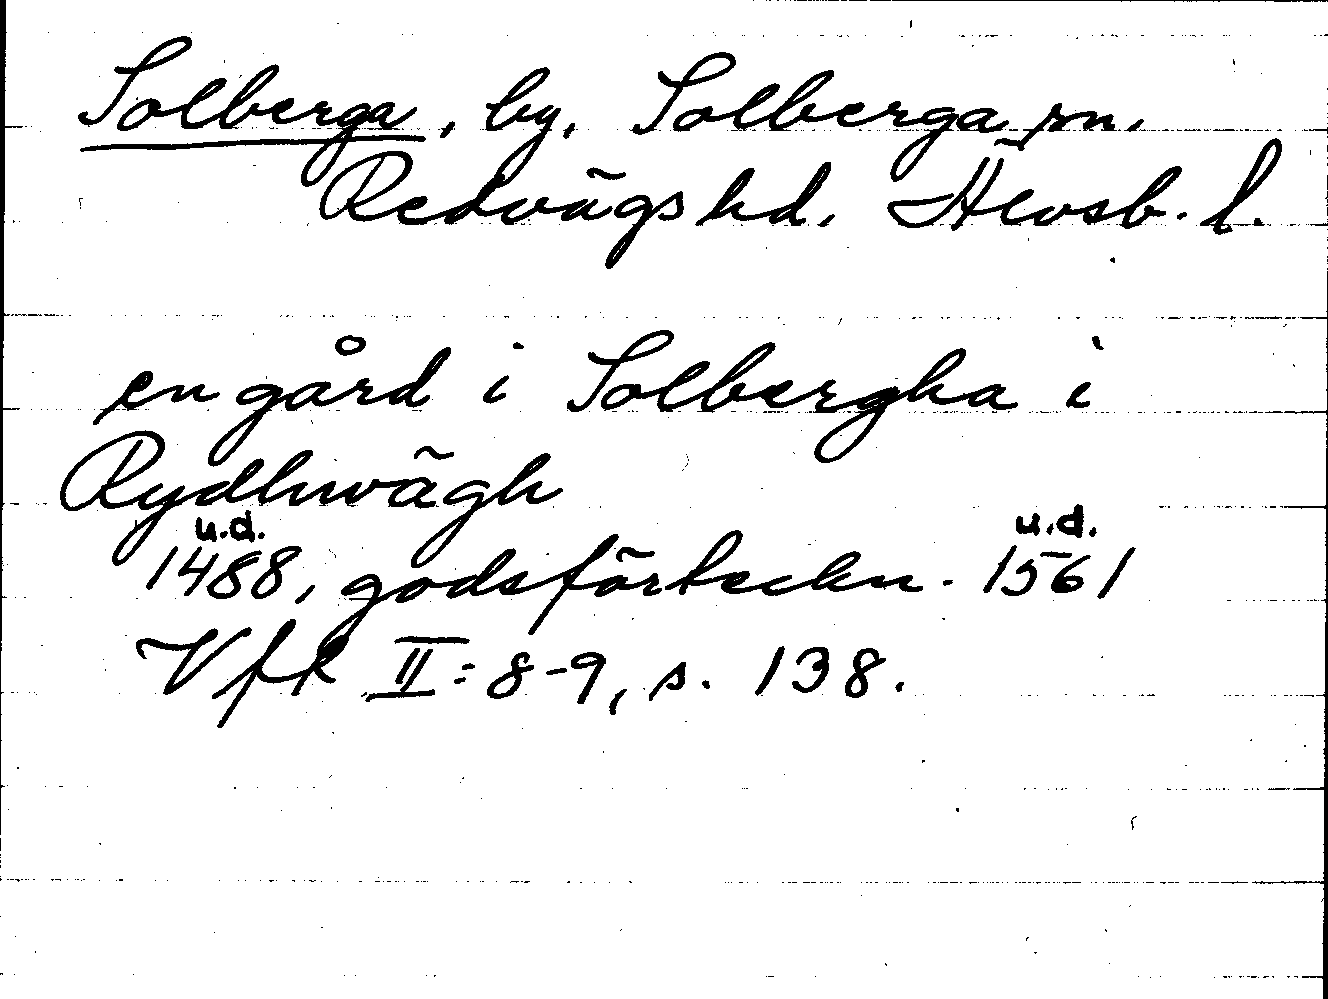 Solberga, by, Solberga sn.
Redvägs hd. Älvsb. l.
en gård i Solbergha i
Rydhwägh
u.d. u.d.
1488, godsförteckn. 1561
Vfk II: 8-9, s. 138.